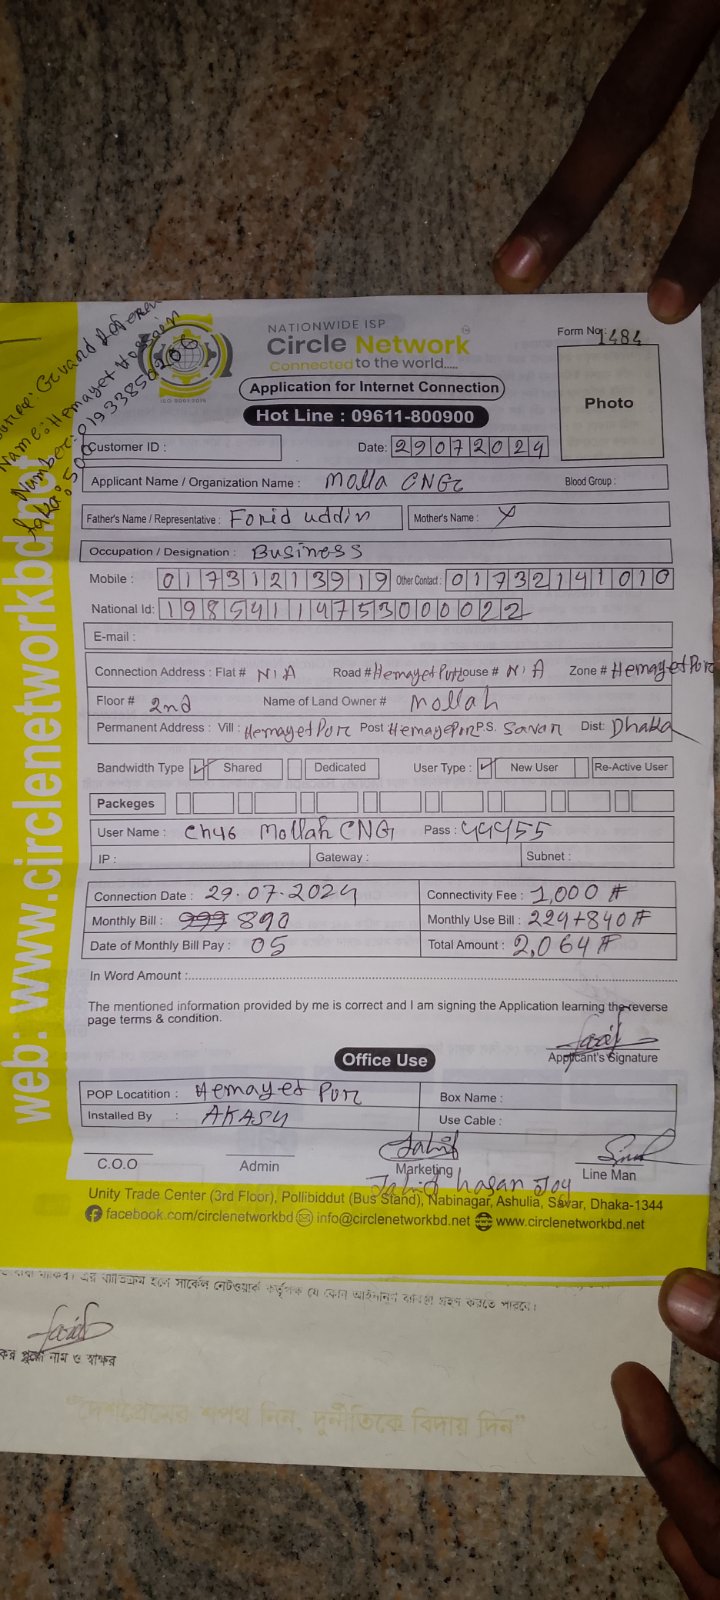 Name: Hemayet Hossain
Number: 01933850206
Taka: 500
NATIONWIDE ISP
Circle Network
Connected to the world.....
ISO 9001:2015
Application for Internet Connection
Hot Line : 09611-800900
Form No : 1484
Photo
Customer ID :
Date: 29072024
Applicant Name / Organization Name : Molla CNG
Blood Group :
Father's Name / Representative : Forid uddin
Mother's Name : X
Occupation / Designation : Business
Mobile : 01731213919 Other Contact : 01732141010
National Id: 19854114753000022
E-mail :
Connection Address : Flat # N/A Road # Hemayet Pur House # N/A Zone # Hemayet Pur
Floor # 2nd Name of Land Owner # Mollah
Permanent Address : Vill : Hemayet Pur Post Hemayet Pur P.S. Savar Dist: Dhaka
Bandwidth Type ✓ Shared Dedicated User Type : ✓ New User Re-Active User
Packeges
User Name : Ch46 Mollah CNG Pass : 44455
IP : Gateway : Subnet :
Connection Date : 29.07.2024 Connectivity Fee : 1,000 ৳
Monthly Bill : 999 890 Monthly Use Bill : 224+840 ৳
Date of Monthly Bill Pay : 05 Total Amount : 2,064 ৳
In Word Amount :
The mentioned information provided by me is correct and I am signing the Application learning the reverse
page terms & condition.
Applicant's Signature
Office Use
POP Locatition : Hemayet Pur Box Name :
Installed By : AKASH Use Cable :
C.O.O Admin Marketing Line Man
Jahid hasan Joy
Unity Trade Center (3rd Floor), Pollibiddut (Bus Stand), Nabinagar, Ashulia, Savar, Dhaka-1344
facebook.com/circlenetworkbd info@circlenetworkbd.net www.circlenetworkbd.net
web: www.circlenetworkbd.net
এর ব্যতিক্রম হলে সার্কেল নেটওয়ার্ক কর্তৃপক্ষ যে কোন আইনানুগ ব্যবস্থা গ্রহন করতে পারবে।
পুরো নাম ও স্বাক্ষর
"দেশপ্রেমের শপথ নিন, দুর্নীতিকে বিদায় দিন"